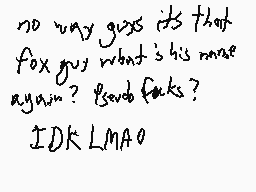 no way guys its that
fox guy what's his name
again? Pseudo focks?
IDK LMAO